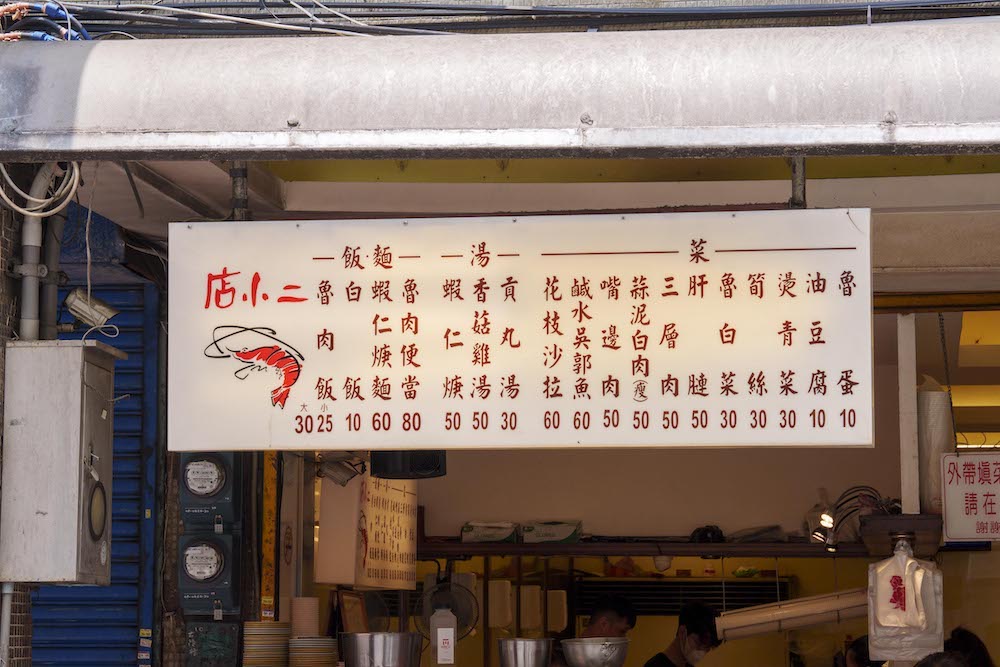 店小二
飯·麵
魯肉飯 大30 小25
白飯 10
蝦仁焿麵 60
魯肉便當 80
湯
蝦仁焿 50
香菇雞湯 50
貢丸湯 30
菜
花枝沙拉 60
鹹水吳郭魚 60
嘴邊肉 50
蒜泥白肉(瘦) 50
三層肉 50
肝腱 50
魯白菜 30
筍絲 30
燙青菜 30
油豆腐 10
魯蛋 10
外帶填菜
請在
謝謝